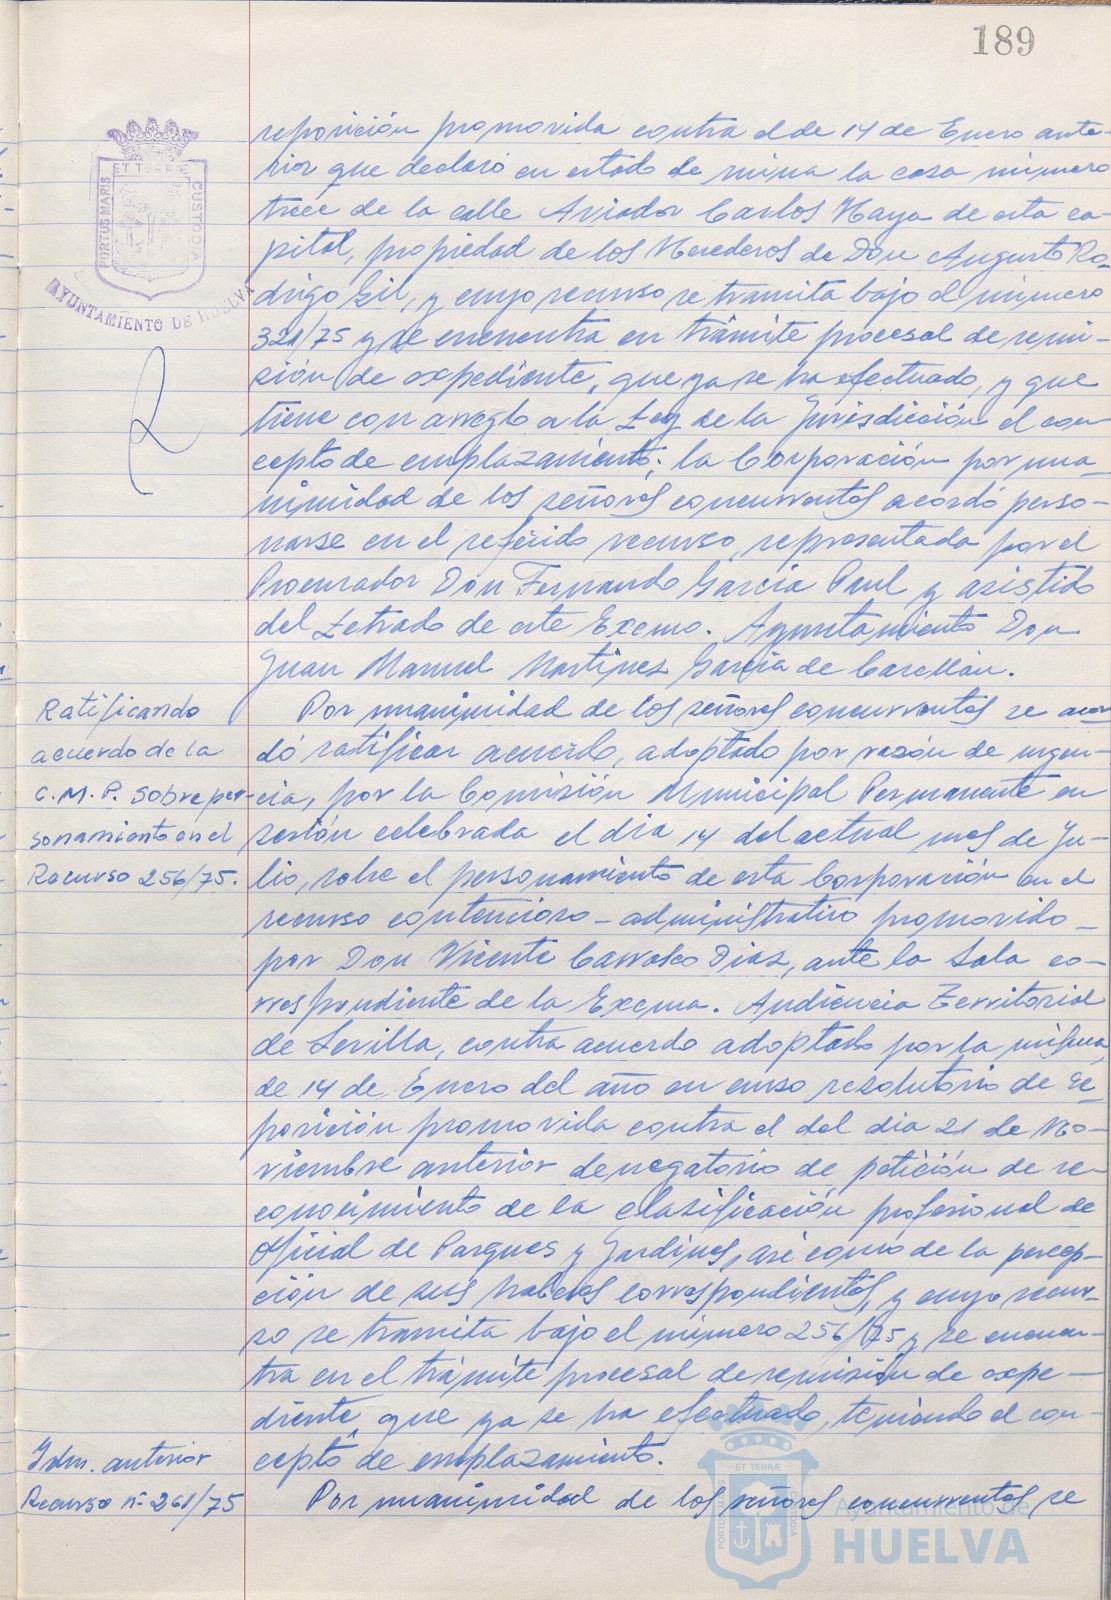 189
reposición promovida contra el de 14 de Enero ante-
rior que declaró en estado de ruina la casa número
trece de la calle Aviador Carlos Haya de esta ca-
pital, propiedad de los Herederos de Don Augusto Ro-
drigo Gil, y cuyo recurso se tramita bajo el número
321/75 y se encuentra en trámite procesal de remi-
sión de expediente, que ya se ha efectuado, y que
tiene con arreglo a la Ley de la Jurisdicción el con-
cepto de emplazamiento; la Corporación por una-
nimidad de los señores concurrentes acordó perso-
narse en el referido recurso, representada por el
Procurador Don Fernando García Paul y asistido
del Letrado de este Excmo. Ayuntamiento Don
Juan Manuel Martínez García de
Ratificando
acuerdo de la
C.M.P. sobre per-
sonamiento en el
Recurso 256/75.
Por unanimidad de los señores concurrentes se acor
dó ratificar acuerdo, adoptado por razón de urgen-
cia, por la Comisión Municipal Permanente en
sesión celebrada el día 14 del actual mes de Ju-
lio, sobre el personamiento de esta Corporación en el
recurso contencioso-administrativo promovido
por Don Vicente Carrasco Diaz, ante la Sala co-
rrespondiente de la Excma. Audiencia Territorial
de Sevilla, contra acuerdo adoptado por la misma,
de 14 de Enero del año en curso resolutorio de re-
posición promovida contra el del dia 21 de No-
viembre anterior denegatorio de petición de re-
conocimiento de la clasificación profesional de
Oficial de Parques y Jardines, así como de la percep-
ción de sus haberes correspondientes, y cuyo recur-
so se tramita bajo el número 256/75 y se encuen-
tra en el trámite procesal de remisión de expe-
diente, que ya se ha efectuado, teniendo el con-
cepto de emplazamiento.
Idm. anterior
Recurso nº 261/75
Por unanimidad de los señores concurrentes se
ET TERRÆ
PORTUS MARIS
CUSTODIA
AYUNTAMIENTO DE HUELVA
ET TERRÆ
PORTUS MARIS
CUSTODIA
Ayuntamiento de
HUELVA